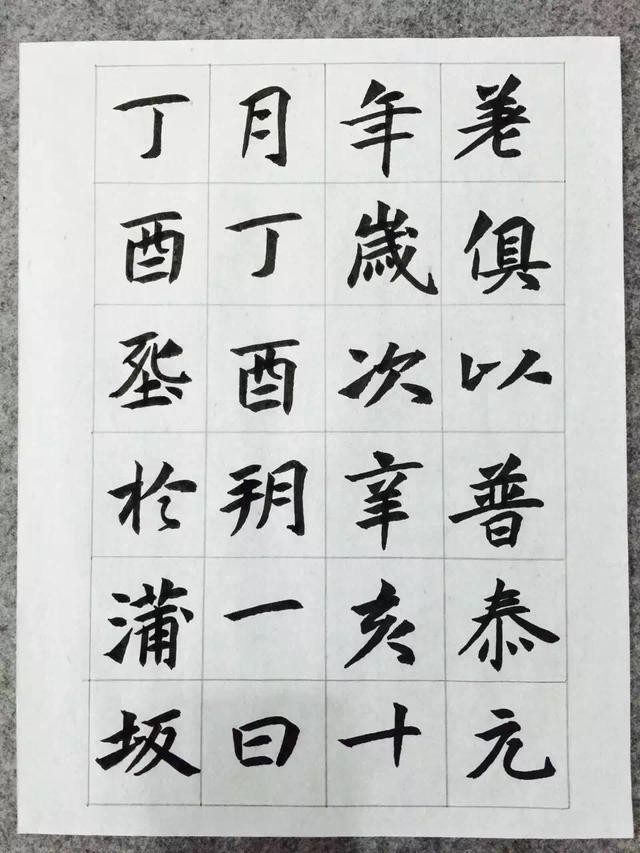 差俱以普泰元
年歲次辛亥十
月丁酉朔一日
丁酉塟於蒲坂